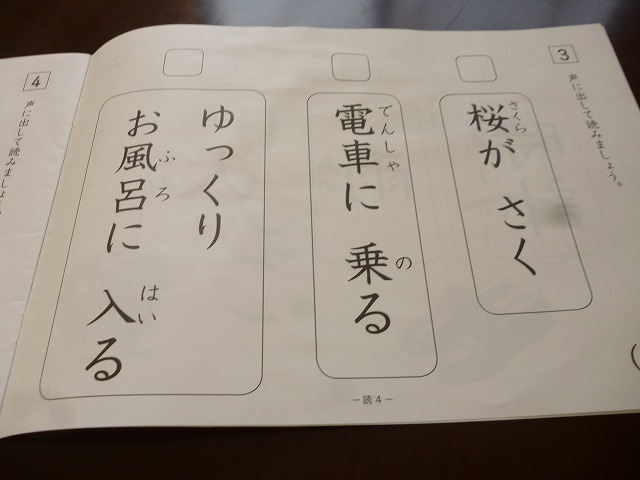 3
声に出して読みましょう。
さくら
桜が さく
でんしゃ の
電車に 乗る
ゆっくり
ふろ はい
お風呂に 入る
－読4－
4
声に出して読みましょ